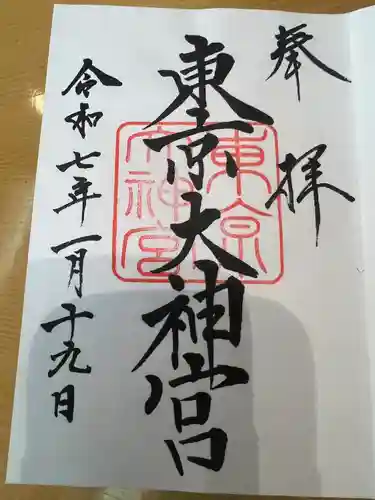 奉拝
東京大神宮
東京
大神宮
令和七年一月十九日